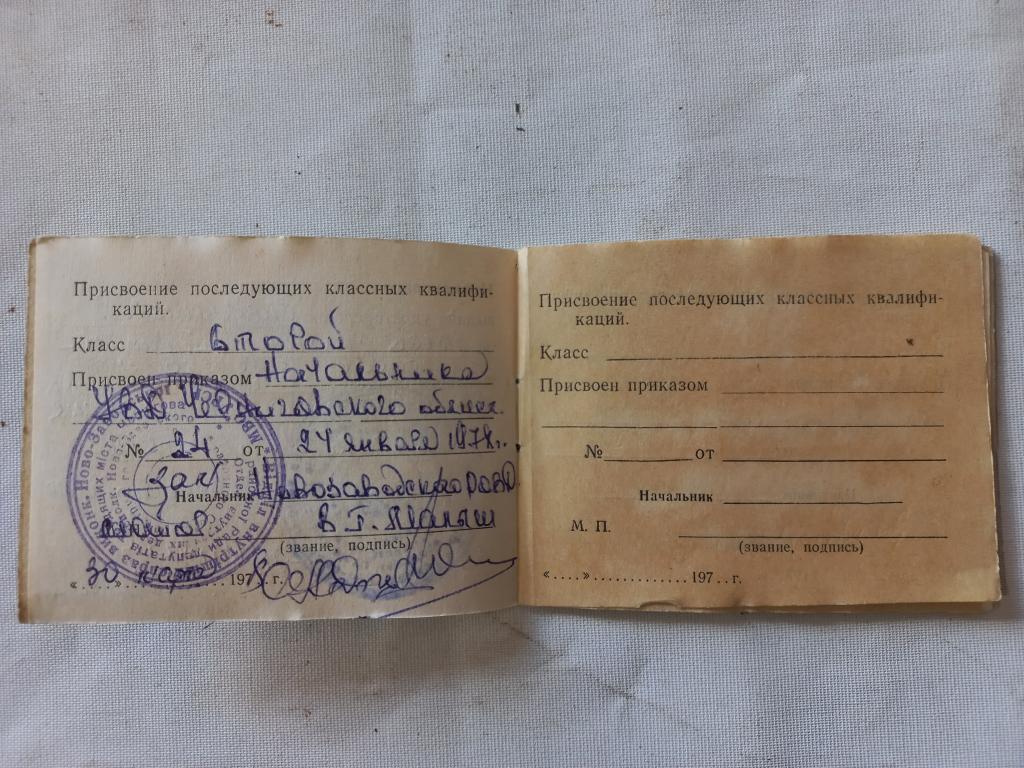 Присвоение последующих классных квалифи-
каций.
Класс второй
Присвоен приказом Начальника
УВД Черниговского облисп.
№ 24 от 24 января 1978 г.
Зам Начальник Новозаводского РОВД
майор В. Г. Малыш
(звание, подпись)
«30» марта 1978 г.
Присвоение последующих классных квалифи-
каций.
Класс
Присвоен приказом
№ от
Начальник
М. П.
(звание, подпись)
«....»............. 197.. г.